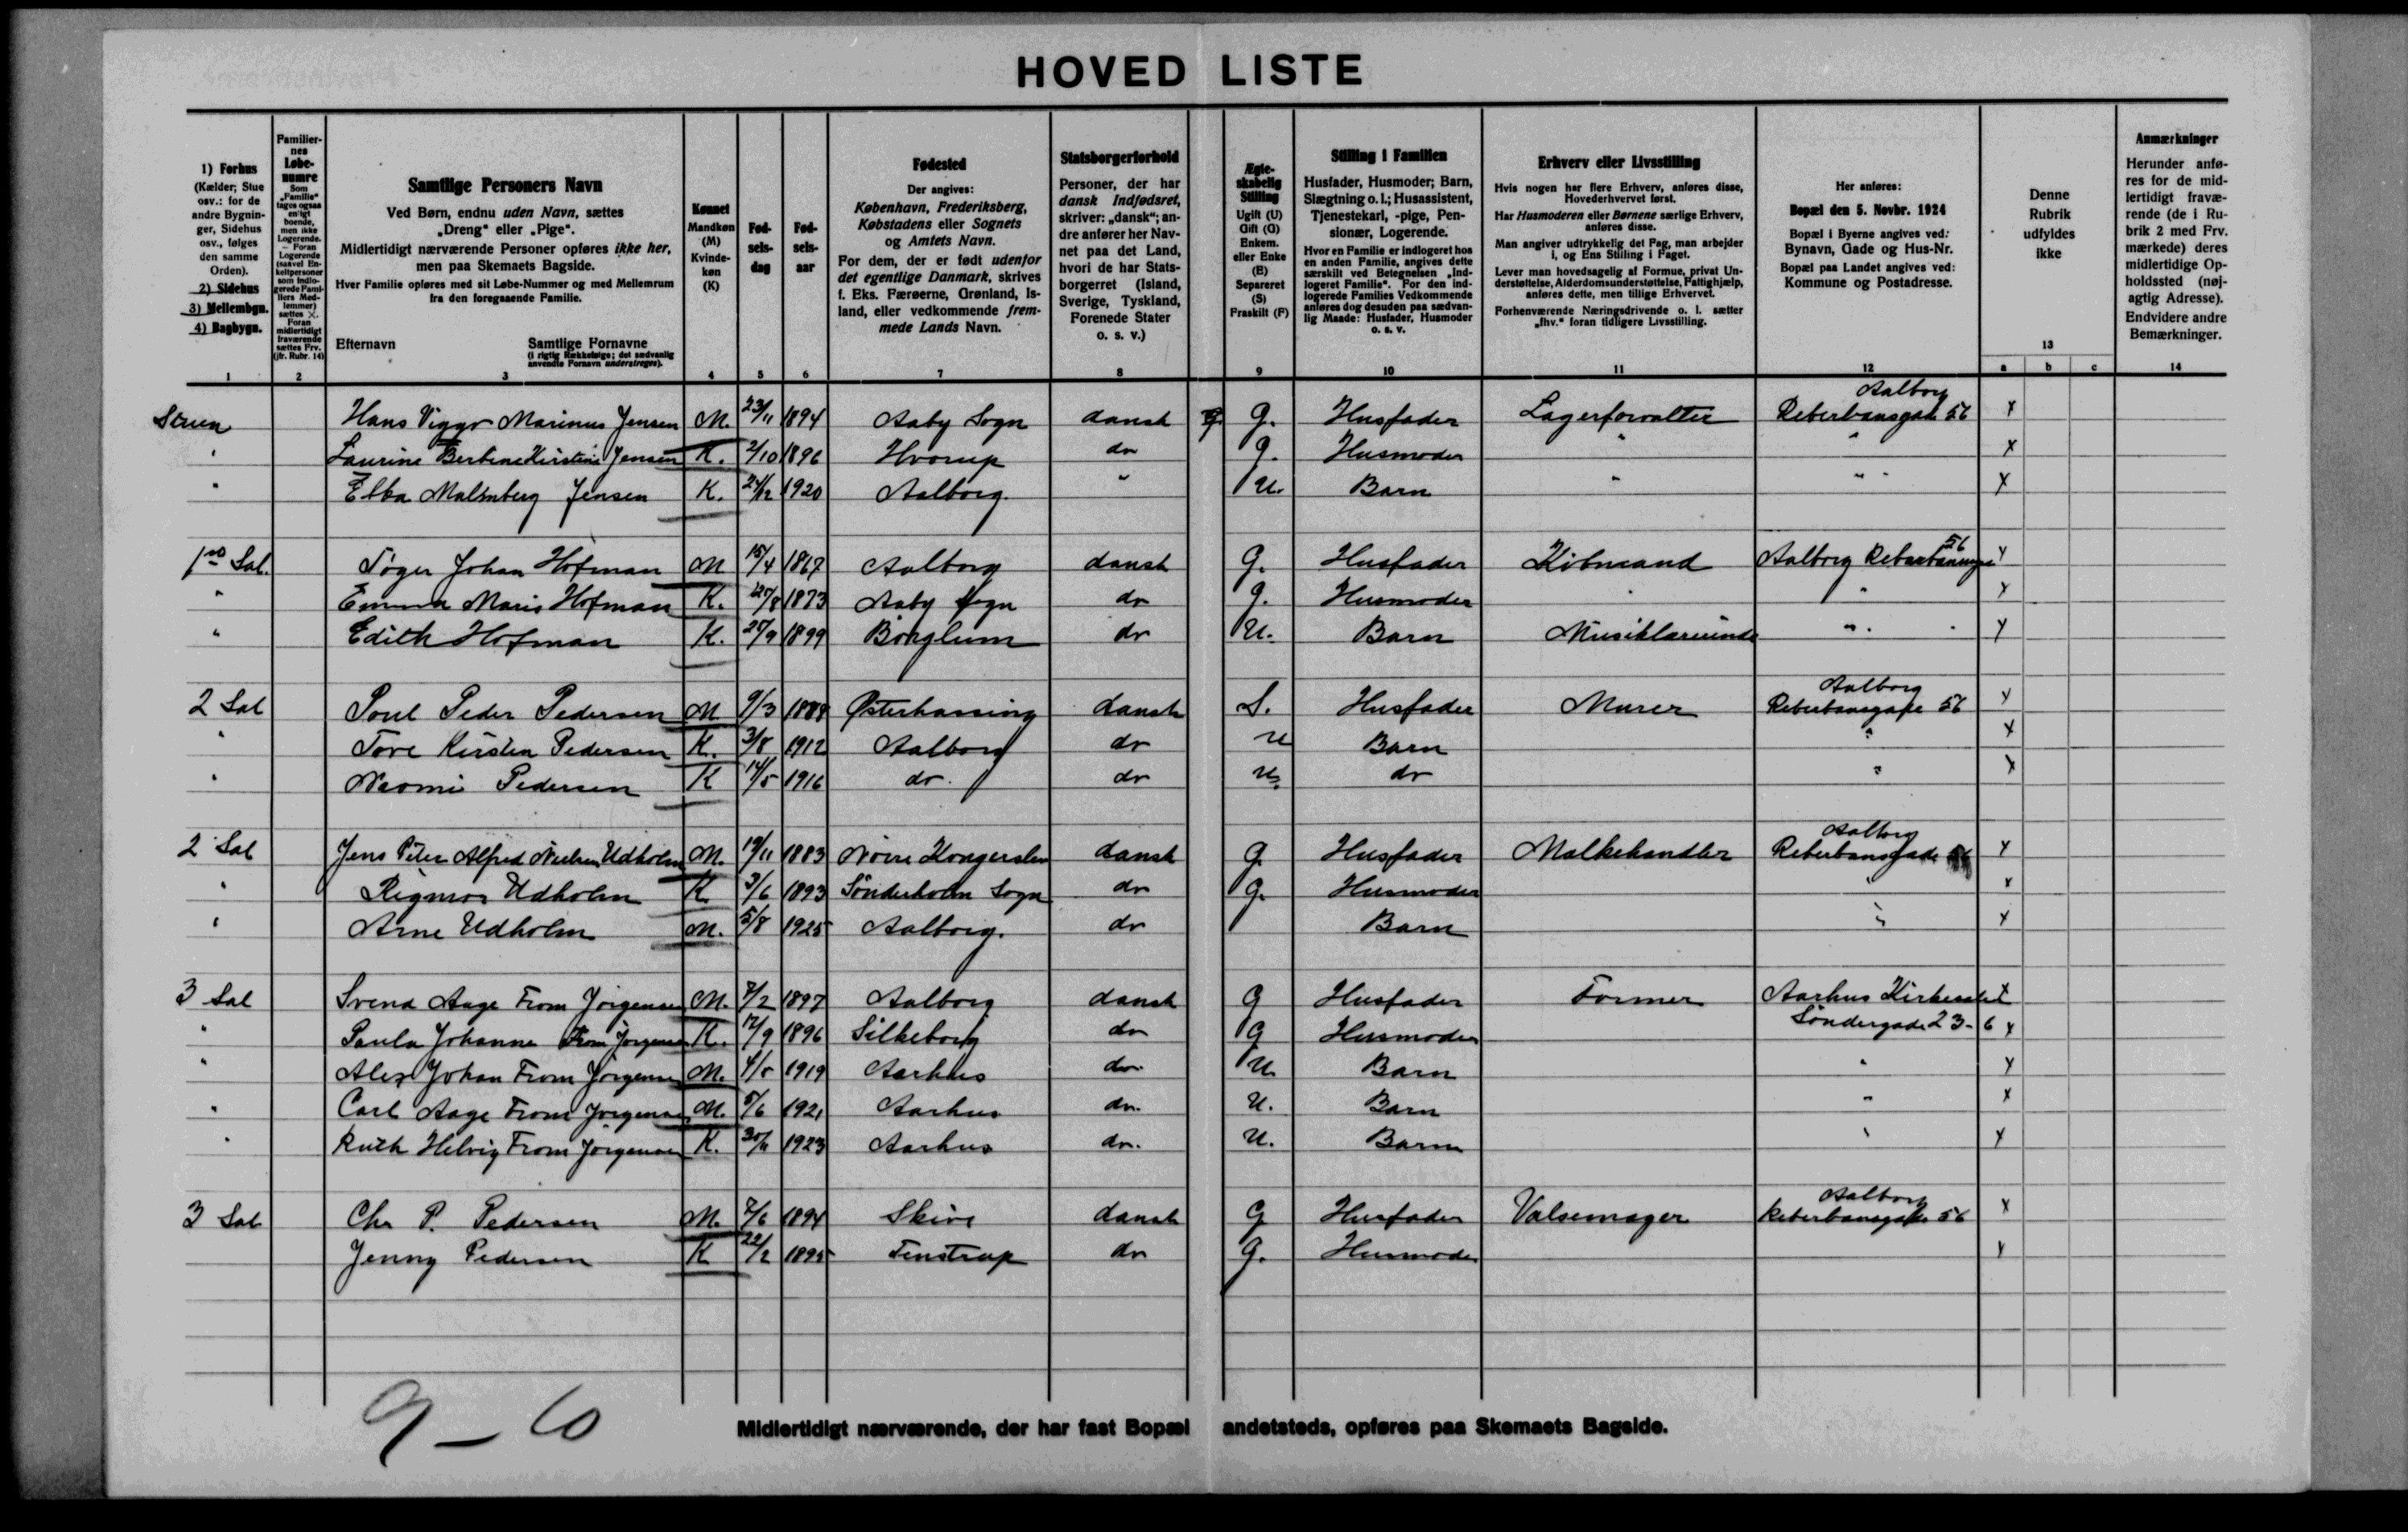 HOVED LISTE
1) Forhus
(Kælder; Stue
osv.: for de
andre Bygnin-
ger, Sidehus
osv., følges
den samme
Orden).
2) Sidehus
3) Mellembgn.
4) Bagbygn.
1
Familier-
nes
Løbe-
numre
Som
„Familie“
tages ogsaa
enligt
boende,
men ikke
Logerende.
– Foran
Logerende
(saavel En-
keltpersoner
som indlo-
gerede Fami-
liers Med-
lemmer)
sættes X.
Foran
midlertidigt
fraværende
sættes Frv.
(jfr. Rubr. 14)
2
Samtlige Personers Navn
Ved Børn, endnu uden Navn, sættes
„Dreng“ eller „Pige“.
Midlertidigt nærværende Personer opføres ikke her,
men paa Skemaets Bagside.
Hver Familie opføres med sit Løbe-Nummer og med Mellemrum
fra den foregaaende Familie.
Efternavn Samtlige Fornavne
(i rigtig Rækkefølge; det sædvanlig
anvendte Fornavn understreges).
3
Kønnet
Mandkøn
(M)
Kvinde-
køn
(K)
4
Fød-
sels-
dag
5
Fød-
sels-
aar
6
Fødested
Der angives:
København, Frederiksberg,
Købstadens eller Sognets
og Amtets Navn.
For dem, der er født udenfor
det egentlige Danmark, skrives
f. Eks. Færøerne, Grønland, Is-
land, eller vedkommende frem-
mede Lands Navn.
7
Statsborgerforhold
Personer, der har
dansk Indfødsret,
skriver: „dansk“; an-
dre anfører her Nav-
net paa det Land,
hvori de har Stats-
borgerret (Island,
Sverige, Tyskland,
Forenede Stater
o. s. v.)
8
Ægte-
skabelig
Stilling
Ugift (U)
Gift (G)
Enkem.
eller Enke
(E)
Separeret
(S)
Fraskilt (F)
9
Stilling i Familien
Husfader, Husmoder; Barn,
Slægtning o. l.; Husassistent,
Tjenestekarl, -pige, Pen-
sionær, Logerende.
Hvor en Familie er indlogeret hos
en anden Familie, angives dette
særskilt ved Betegnelsen „Ind-
logeret Familie“. For den ind-
logerede Families Vedkommende
anføres dog desuden paa sædvan-
lig Maade: Husfader, Husmoder
o. s. v.
10
Erhverv eller Livsstilling
Hvis nogen har flere Erhverv, anføres disse,
Hovederhvervet først.
Har Husmoderen eller Børnene særlige Erhverv,
anføres disse.
Man angiver udtrykkelig det Fag, man arbejder
i, og Ens Stilling i Faget.
Lever man hovedsagelig af Formue, privat Un-
derstøttelse, Alderdomsunderstøttelse, Fattighjælp,
anføres dette, men tillige Erhvervet.
Forhenværende Næringsdrivende o. l. sætter
„fhv.“ foran tidligere Livsstilling.
11
Her anføres:
Bopæl den 5. Novbr. 1924
Bopæl i Byerne angives ved:
Bynavn, Gade og Hus-Nr.
Bopæl paa Landet angives ved:
Kommune og Postadresse.
12
Denne
Rubrik
udfyldes
ikke
13
a b c
Anmærkninger
Herunder anfø-
res for de mid-
lertidigt fravæ-
rende (de i Ru-
brik 2 med Frv.
mærkede) deres
midlertidige Op-
holdssted (nøj-
agtig Adresse).
Endvidere andre
Bemærkninger.
14
Aalborg
Stuen Hans Viggo Marinus Jensen M. 23/11 1894 Aaby Sogn dansk g. Husfader Lagerforvalter Reberbansgade 56 x
" Laurine Berbine Kirstine Jensen K. 2/10 1896 Hvorup do g. Husmoder " " x
" Ebba Malmberg Jensen K. 24/12 1920 Aalborg. " U. Barn " " " x
56
1ste Sal. Søger Johan Hofman M 15/4 1867 Aalborg dansk g. Husfader Købmand Aalborg x
" Emma Marie Hofman K. 1873 Aaby Sogn do g. Husmoder " " x
" Edith Hofman K. 27/9 1899 Børglum do U. Barn Musiklærerinde " " x
Aalborg
2 Sal Poul Peder Pedersen M 9/3 1888 Østerhassing dansk S. Husfader Murer Reberbansgade 56 x
" Tove Kirsten Pedersen K. 3/8 1912 Aalborg do U Barn " x
" Naomi Pedersen K 14/5 1916 do. do U. do " x
Aalborg
2 Sal Jens Peter Alfred Nielsen Udholm M. 19/11 1883 Nørre Kongerslev dansk g. Husfader Mælkehandler Reberbansgade x
" Rigmor Udholm K 3/6 1893 Sønderholm Sogn do g. Husmoder " x
" Arne Udholm M. 5/8 1925 Aalborg. do Barn " x
3 Sal Svend Aage From Jørgensen M. 7/2 1897 Aalborg dansk G Husfader Former Aarhus x
" Paula Johanne From Jørgensen K. 12/9 1896 Silkeborg do G Husmoder Søndergade 23-6 x
" Alex Johan From Jørgensen M. 4/5 1919 Aarhus do U Barn " x
" Carl Aage From Jørgensen M. 5/6 1921 Aarhus do. U. Barn " x
" Ruth Helvig From Jørgensen K. 1923 Aarhus do. U. Barn " x
Aalborg
3 Sal Chr P. Pedersen M. 7/6 1894 Skive dansk G Husfader Valsemager Reberbansgade 56 x
Jenny Pedersen K 22/2 1895 Finstrup do G. Husmoder x
9 – 10
Midlertidigt nærværende, der har fast Bopæl andetsteds, opføres paa Skemaets Bagside.